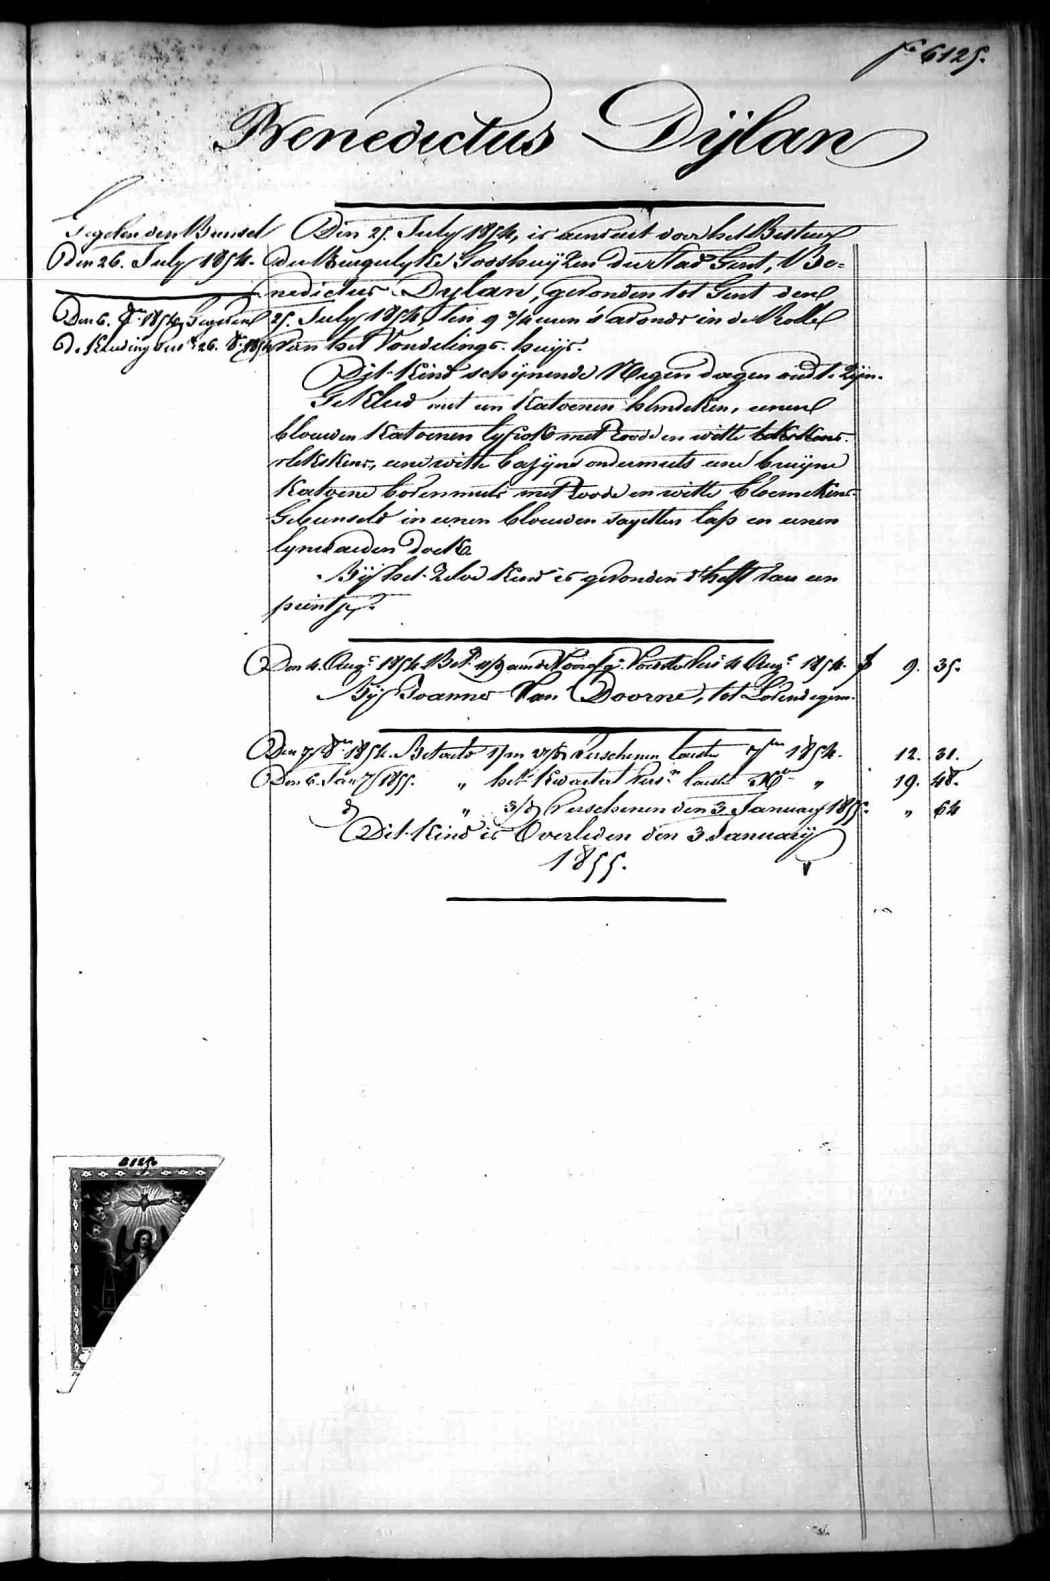 fo 6125.
Benedictus Dÿlan
Gegeben den Bunsel
Den 26. July 1854.
Den 6. 1854, Gegeven
de Kleeding
Den 25. July 1854, is aenveert door het Bestuer
der Burgerlyke Godshuÿzen der Stad Gent, Be=
nedictus Dylan, gevonden tot Gent den
25. July 1854, ten 9 3/4 uren s'avonds in de Rolle
van het Vondelings-huÿs.
Dit Kind schÿnende Negen dagen oud te Zÿn.
Gekleed met een Katoenen hemdeken, eenen
blouwen Katoenen lyfrok met Roode en witte
vlekskens, eene witte bazÿne ondermuts eene bruÿne
Katoene bovenmuts met Roode en witte bloemekens
Gebunseld in eenen blouwen sayetten lap en eenen
lynwaeden doek.
Bÿ het Zelve Kind is gevonden d'helft van een
peintje.
Den 4. Augt 1854 4 Augt 1854. f 9. 35.
Bÿ Joannes Van Doorne, tot Lovendegem.
Den 7 8bre 1854. Betaelt verschenen laesten 7bre 1854. 12. 31.
Den 6. Jany 1855. " het Kwartael laest " 19. 48.
do " 3/ Verschenen den 3 January 1855. " 64
Dit Kind is Overleden den 3 Januarÿ
1855.
6125